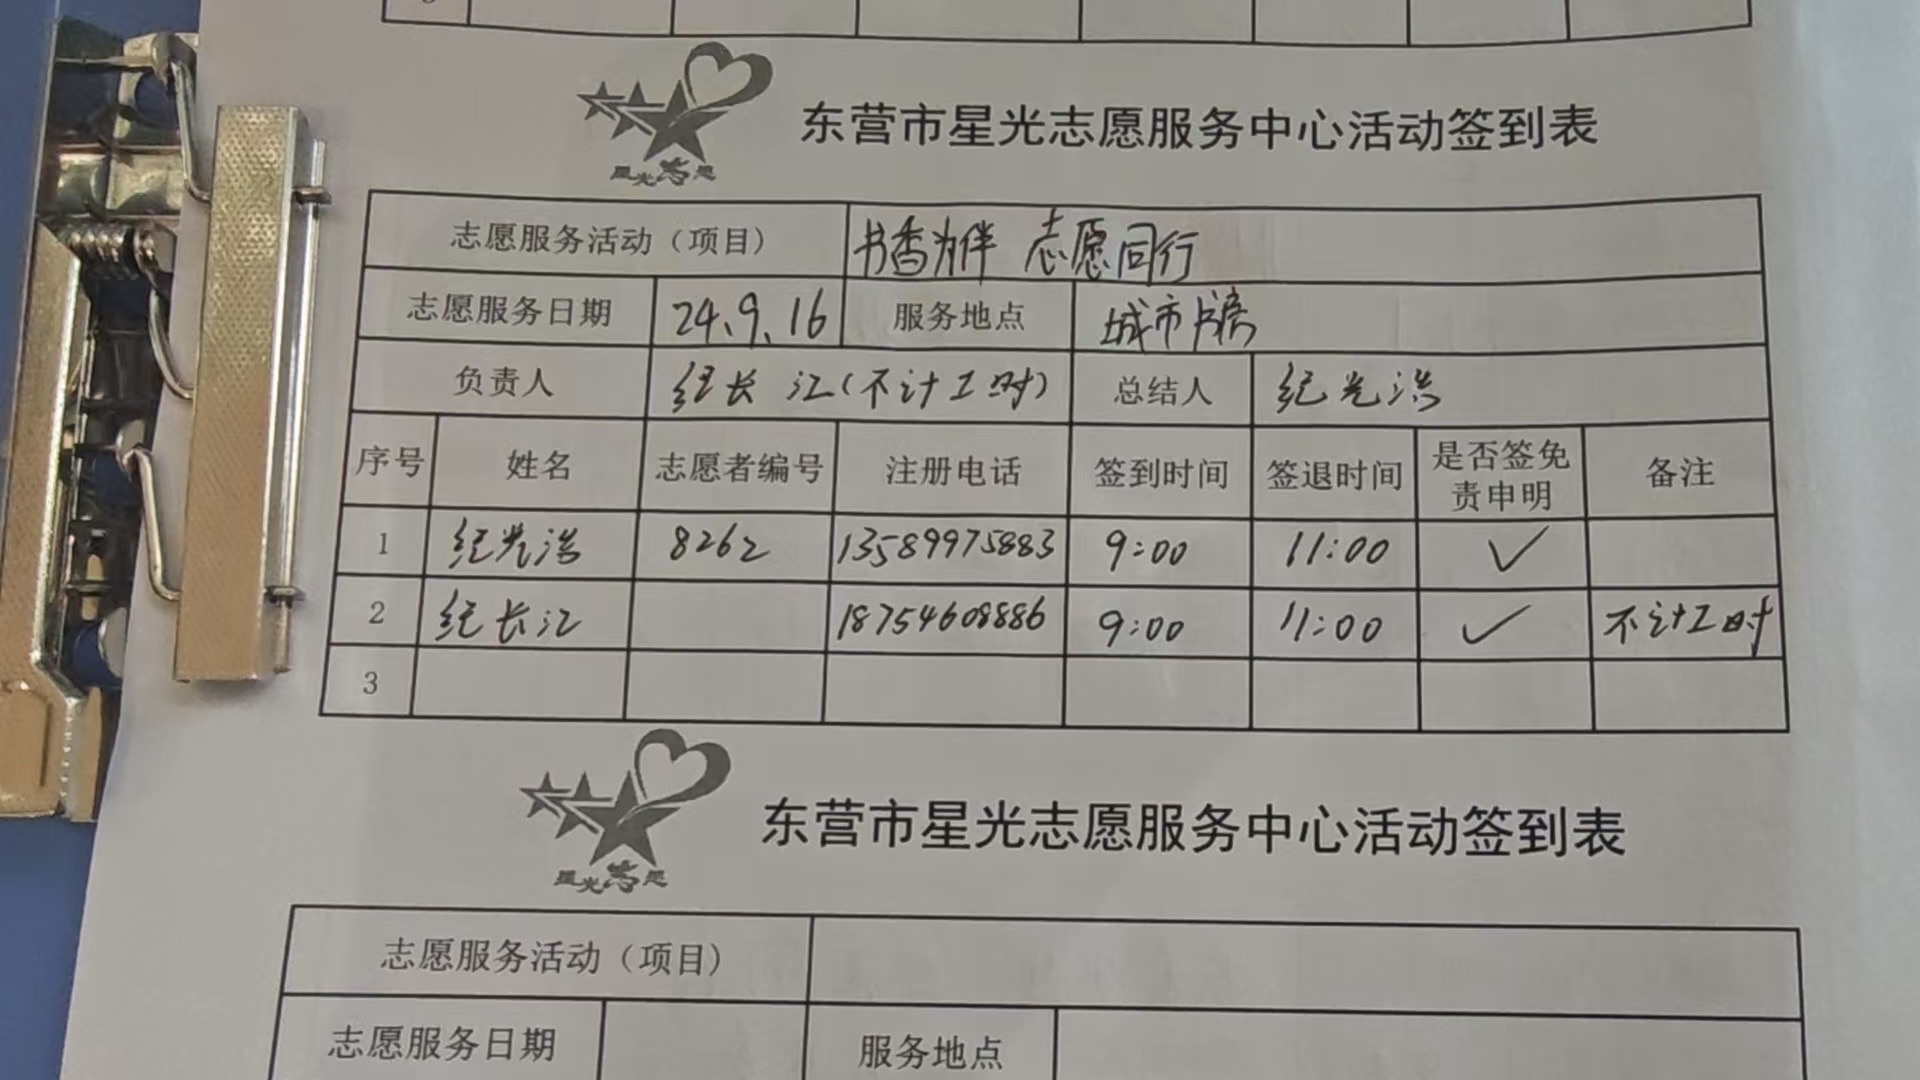 星光志愿
东营市星光志愿服务中心活动签到表
志愿服务活动（项目） 书香为伴 志愿同行
志愿服务日期 24.9.16 服务地点 城市书房
负责人 纪长江（不计工时） 总结人 纪光浩
序号 姓名 志愿者编号 注册电话 签到时间 签退时间 是否签免责申明 备注
1 纪光浩 8262 13589975883 9:00 11:00 ✓
2 纪长江 18754608886 9:00 11:00 ✓ 不计工时
3
星光志愿
东营市星光志愿服务中心活动签到表
志愿服务活动（项目）
志愿服务日期 服务地点